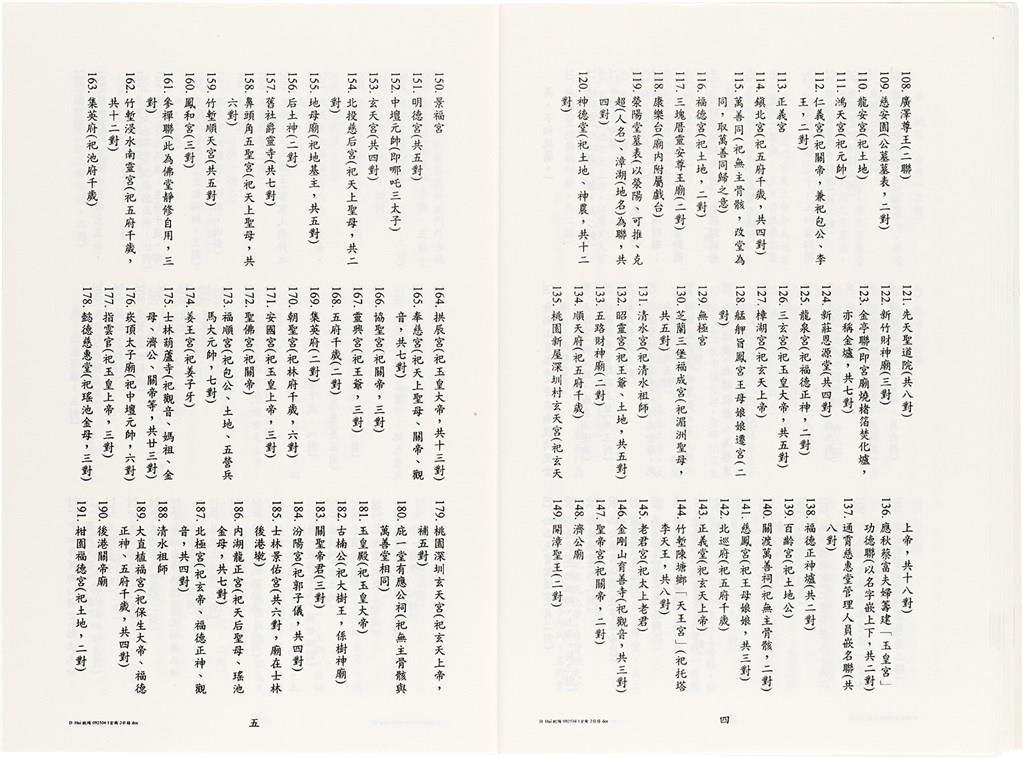 108. 廣澤尊王(二聯)
109. 慈安園(公墓墓表，二對)
110. 龍安宮(祀土地)
111. 鴻天宮(祀元帥)
112. 仁義宮(祀關帝，兼祀包公、李
王，二對)
113. 正義宮
114. 鎮北宮(祀五府千歲，共四對)
115. 萬善同(祀無主骨骸，改堂為
同，取萬善同歸之意)
116. 福德宮(祀土地，二對)
117. 三塊厝靈安尊王廟(二對)
118. 康樂台(廟內附屬戲台)
119. 滎陽堂墓表(以滎陽、可推、克
超(人名)、漳湖(地名)為聯，共
四對)
120. 神德堂(祀土地、神農，共十二
對)
121. 先天聖道院(共八對)
122. 新竹財神廟(三對)
123. 金亭聯(即宮廟燒楮箔焚化爐，
亦稱金爐，共七對)
124. 新莊恩源堂(共四對)
125. 龍泉宮(祀福德正神，二對)
126. 三玄宮(祀玉皇大帝，共五對)
127. 樟湖宮(祀玄天上帝)
128. 艋舺旨鳳宮王母娘娘遷宮(二
對)
129. 無極宮
130. 芝蘭三堡福成宮(祀湄洲聖母，
共五對)
131. 清水宮(祀清水祖師)
132. 昭靈宮(祀王爺、土地，共五對)
133. 五路財神廟(二對)
134. 順天府(祀五府千歲)
135. 桃園新屋深圳村玄天宮(祀玄天
上帝，共十八對)
136. 應秋蔡富夫婦籌建「玉皇宮」
功德聯(以名字嵌上下，共二對)
137. 通霄慈惠堂管理人員嵌名聯(共
八對)
138. 福德正神爐(共二對)
139. 百齡宮(祀土地公)
140. 關渡萬善祠(祀無主骨骸，二對)
141. 慈鳳宮(祀王母娘娘，共三對)
142. 北巡府(祀五府千歲)
143. 正義堂(祀玄天上帝)
144. 竹塹陳塘鄉「天王宮」(祀托塔
李天王，共八對)
145. 老君宮(祀太上老君)
146. 金剛山育善寺(祀觀音，共三對)
147. 聖帝宮(祀關帝，二對)
148. 濟公廟
149. 開漳聖王(二對)
四
150. 景福宮
151. 明德宮(共五對)
152. 中壇元帥(即哪吒三太子)
153. 玄天宮(共四對)
154. 北投慈后宮(祀天上聖母，共二
對)
155. 地母廟(祀地基主，共五對)
156. 后土神(二對)
157. 舊社爵靈寺(共七對)
158. 鼻頭角五聖宮(祀天上聖母，共
六對)
159. 竹塹順天宮(共五對)
160. 鳳和宮(三對)
161. 參禪聯(此為佛堂靜修自用，三
對)
162. 竹塹浸水南靈宮(祀五府千歲，
共十二對)
163. 集英府(祀池府千歲)
164. 拱辰宮(祀玉皇大帝，共十三對)
165. 奉慈宮(祀天上聖母、關帝、觀
音，共七對)
166. 協聖宮(祀關帝，三對)
167. 靈興宮(祀王爺，三對)
168. 五府千歲(二對)
169. 集英府(二對)
170. 朝聖宮(祀林府千歲，六對)
171. 安國宮(祀玉皇上帝，三對)
172. 聖佛宮(祀關帝)
173. 福順宮(祀包公、土地、五營兵
馬大元帥，七對)
174. 姜王宮(祀姜子牙)
175. 士林葫蘆寺(祀觀音、媽祖、金
母、濟公、關帝等，共廿三對)
176. 崁頂太子廟(祀中壇元帥，六對)
177. 指雲宮(祀玉皇上帝，三對)
178. 懿德慈惠堂(祀瑤池金母，三對)
179. 桃園深圳玄天宮(祀玄天上帝，
補五對)
180. 庇一堂有應公祠(祀無主骨骸與
萬善堂相同)
181. 玉皇殿(祀玉皇大帝)
182. 古楠公(祀大樹王，係樹神廟)
183. 關聖帝君(三對)
184. 汾陽宮(祀郭子儀，共四對)
185. 士林景佑宮(共六對，廟在士林
後港墘)
186. 內湖龍正宮(祀天后聖母、瑤池
金母，共七對)
187. 北極宮(祀玄帝、福德正神、觀
音，共四對)
188. 清水祖師
189. 大直植福宮(祀保生大帝、福德
正神、五府千歲，共四對)
190. 後港關帝廟
191. 柑園福德宮(祀土地，二對)
五